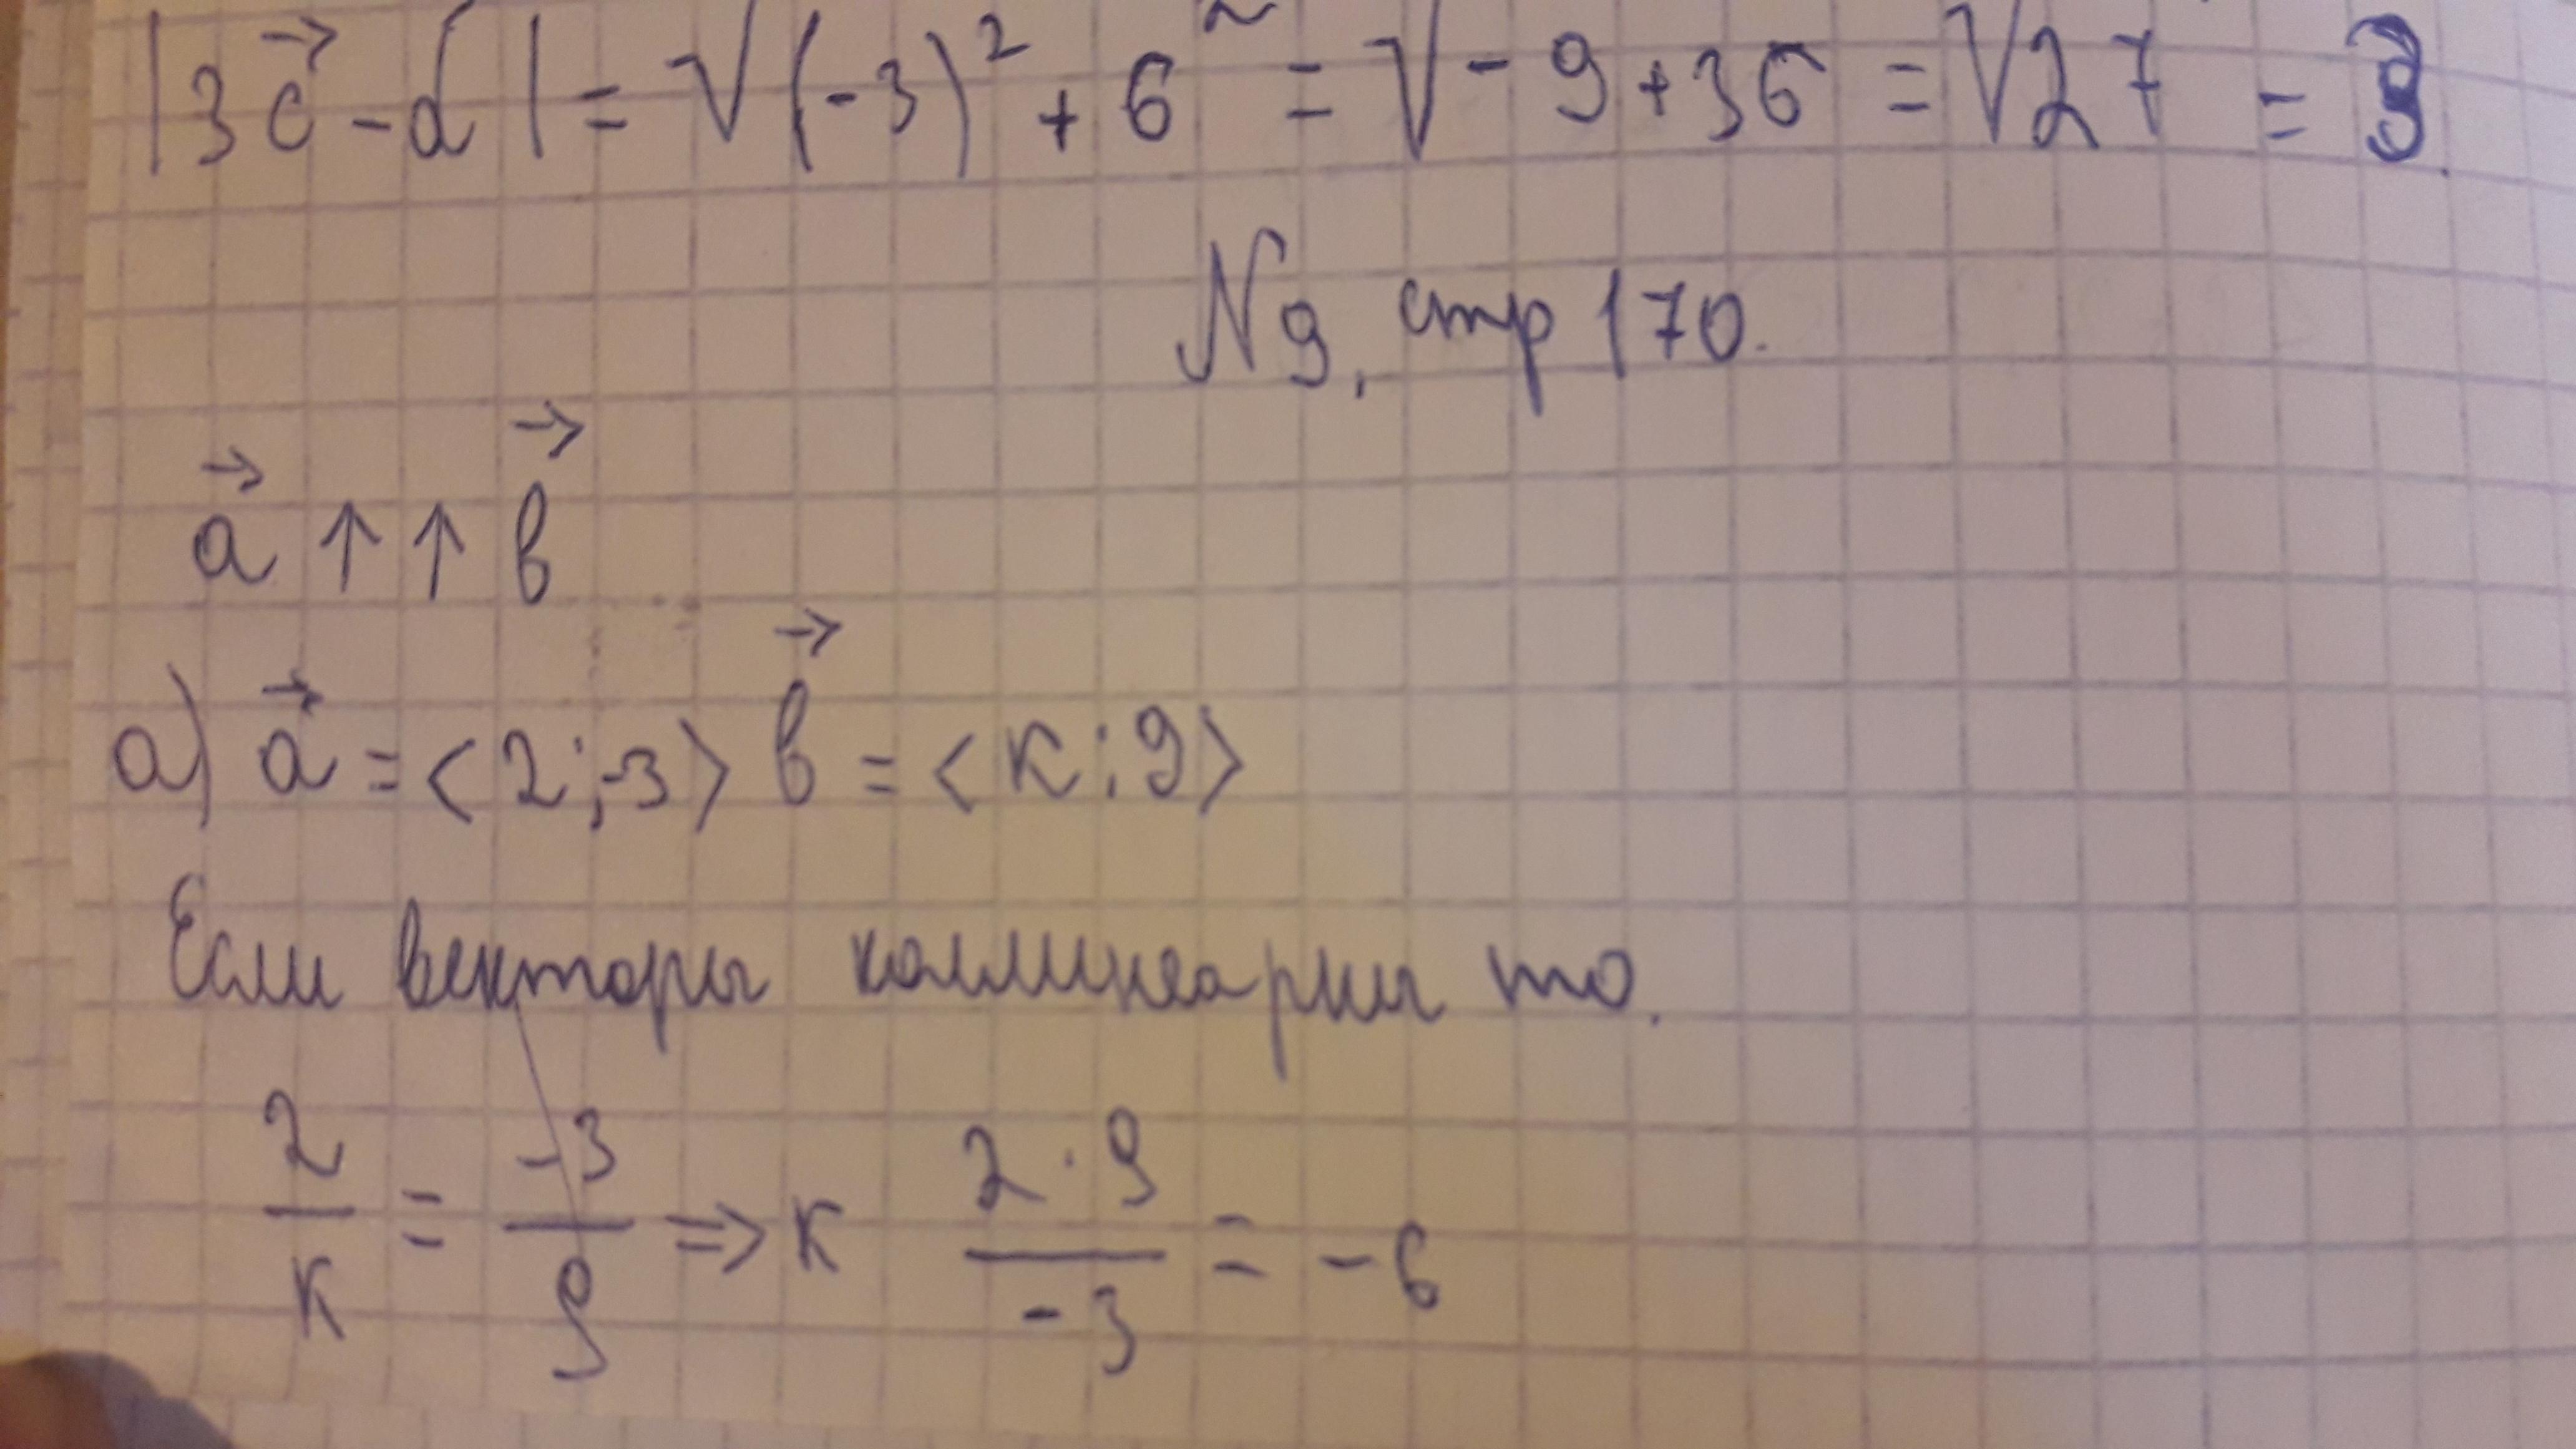 |3c⃗ - d| = √(-3)² + 6² = √-9+36 = √27 =
N9, стр 170.
a⃗ ↑↑ b⃗
а) a⃗ = <2;-3> b⃗ = <к;9>
Если векторы коллинеарны то.
2/к = -3/9 => к 2·9/-3 = -6